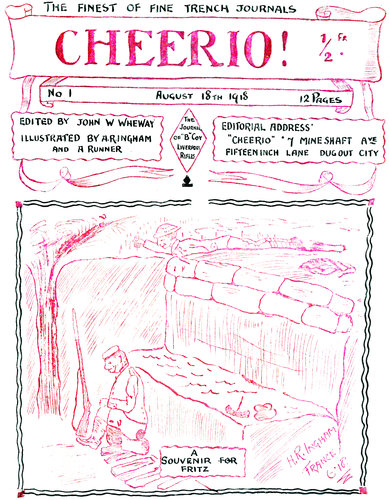 THE FINEST OF FINE TRENCH JOURNALS
CHEERIO!
1/2 FR.
No 1 AUGUST 18TH 1918 12 PAGES
EDITED BY JOHN W WHEWAY
ILLUSTRATED BY A.R.INGHAM
AND A RUNNER
THE
JOURNAL
OF "B" COY
LIVERPOOL
RIFLES
EDITORIAL ADDRESS'
"CHEERIO" 7 MINE SHAFT AVE
FIFTEEN INCH LANE DUG OUT CITY
A
SOUVENIR FOR
FRITZ
FRANCE